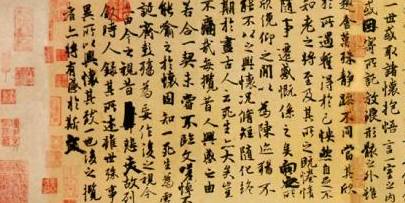 一世或取諸懷抱悟言一室之內
或因寄所託放浪形骸之外雖
趣舍萬殊靜躁不同當其欣
於所遇蹔得於己怏然自足不
知老之將至及其所之既惓情
隨事遷感慨係之矣向之所
欣俛仰之閒以為陳迹猶不
能不以之興懷況脩短隨化終
期於盡古人云死生亦大矣豈
不痛哉每攬昔人興感之由
若合一契未嘗不臨文嗟悼不
能喻之於懷固知一死生為虛
誕齊彭殤為妄作後之視今
亦由今之視昔悲夫故列
敘時人錄其所述雖世殊事
異所以興懷其致一也後之攬
者亦將有感於斯文